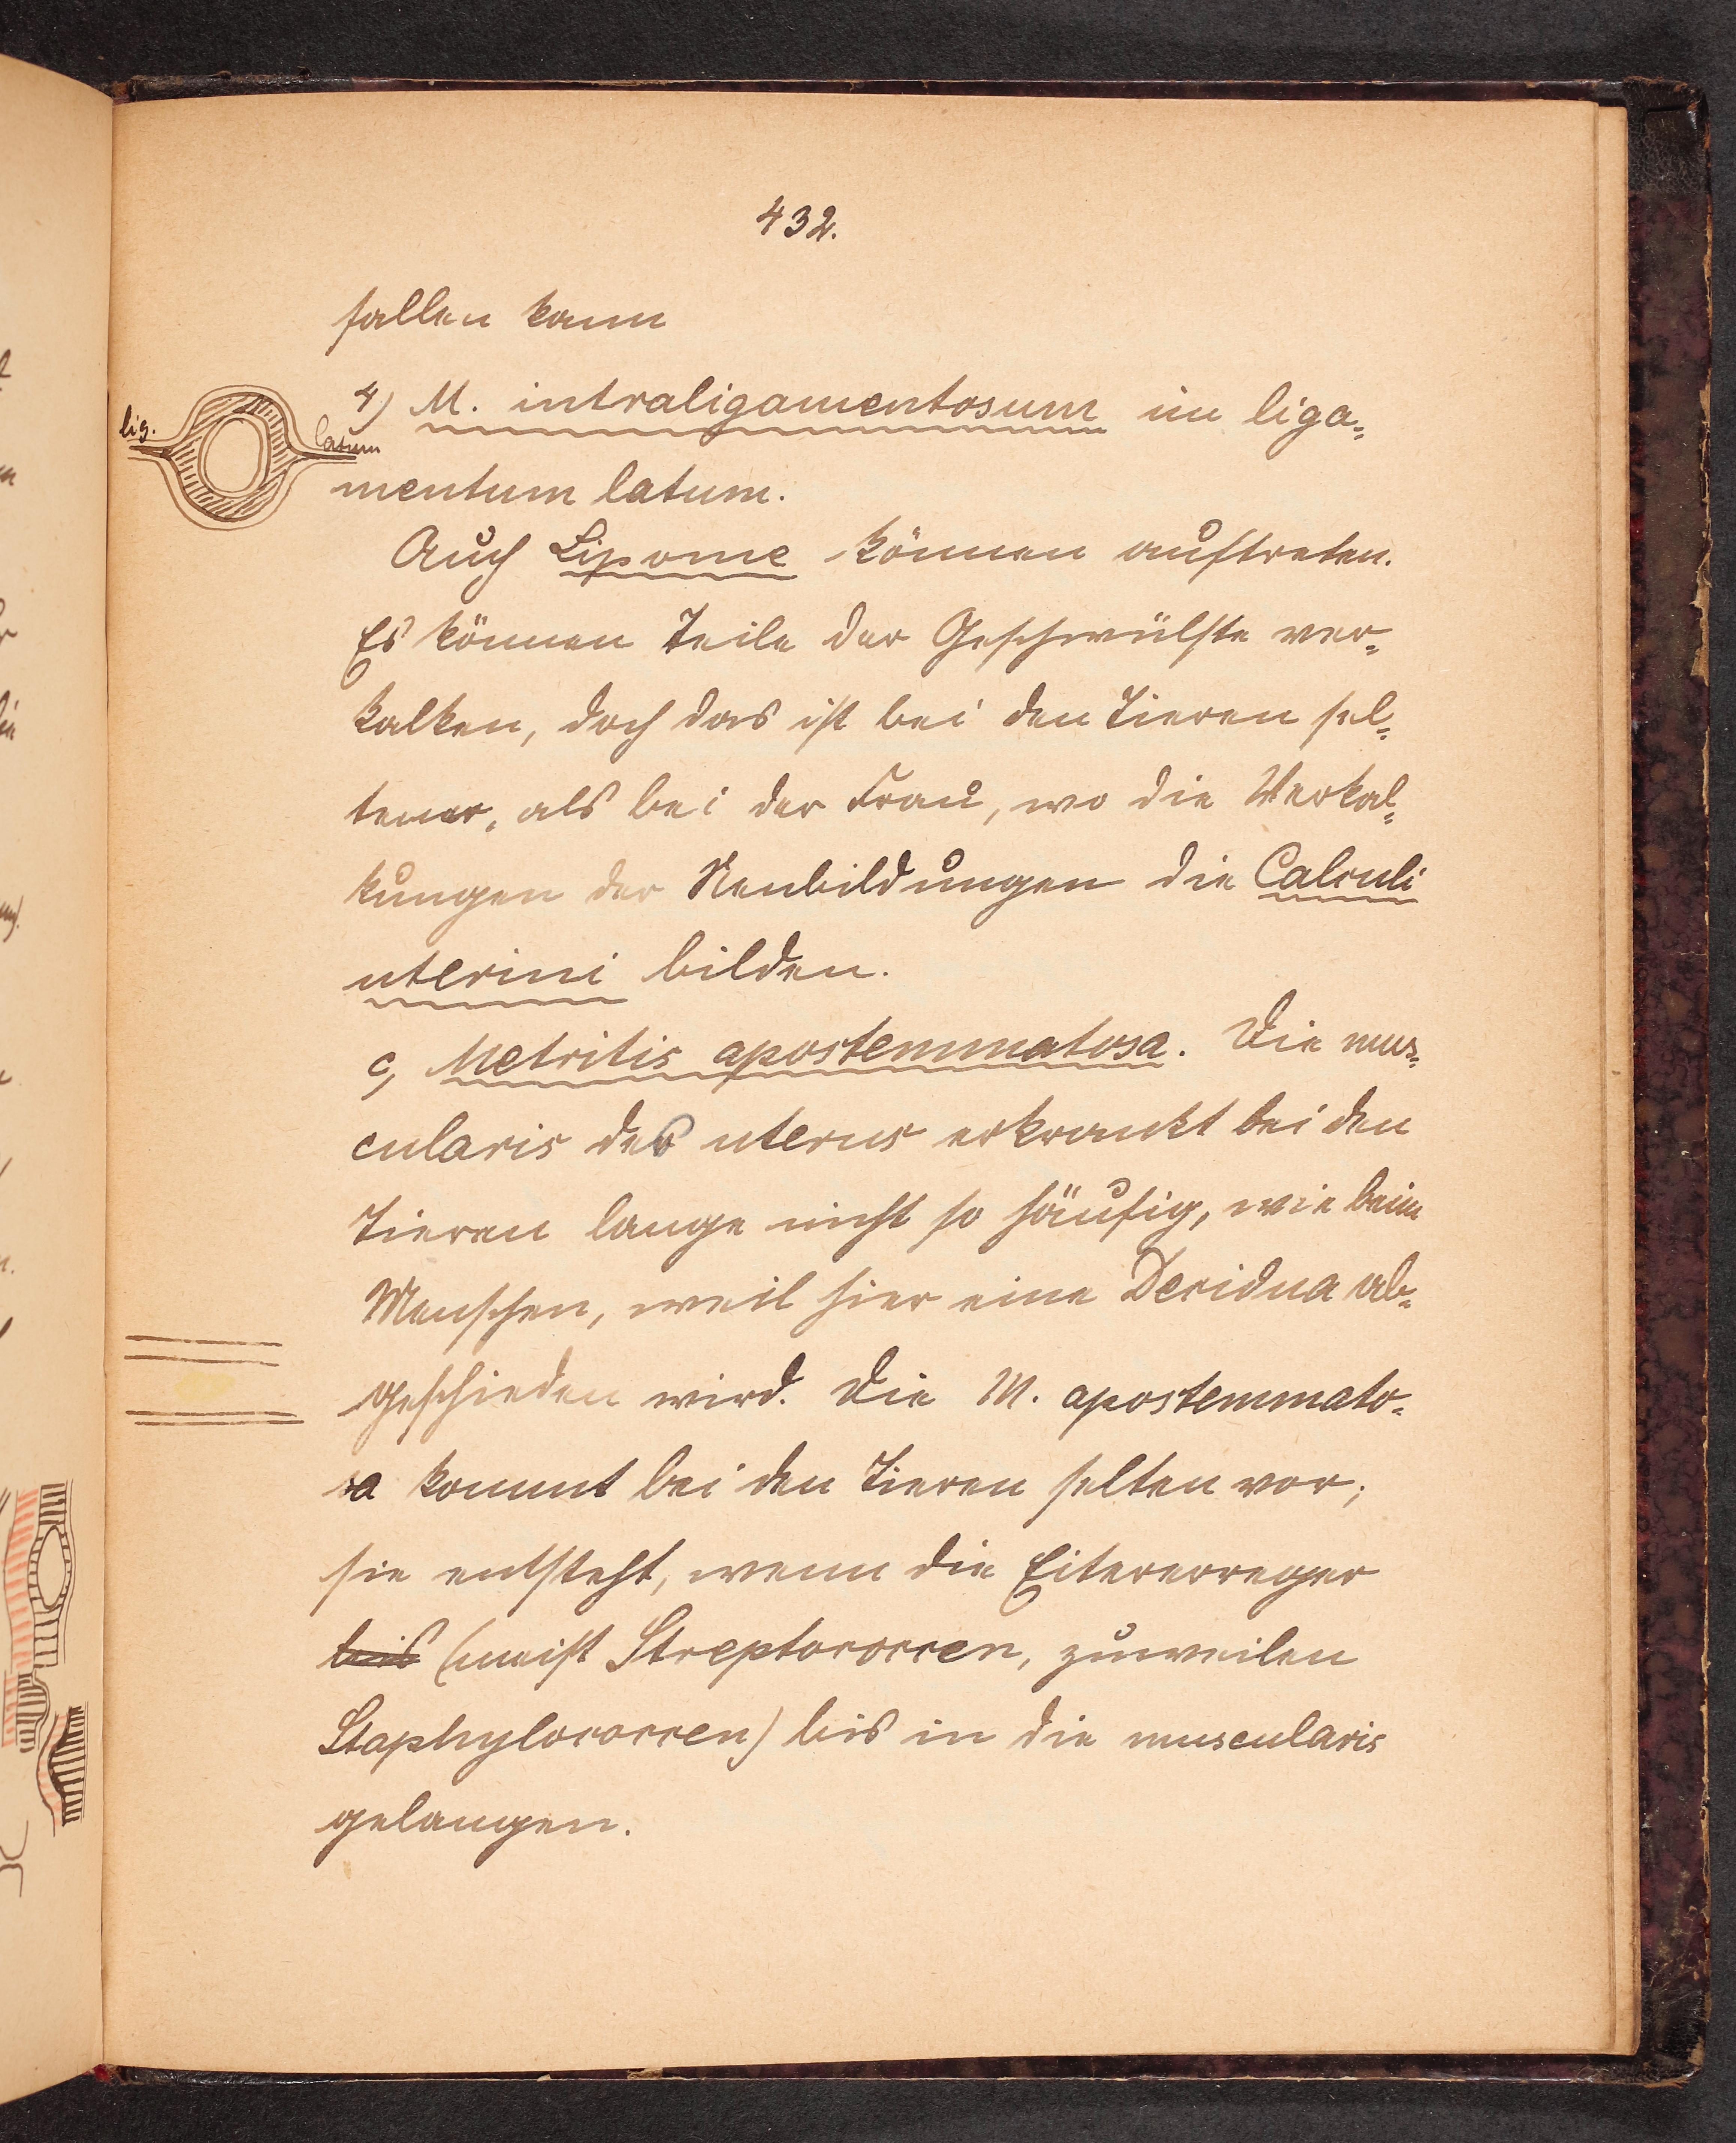 432.
fallen kann
4) M. intraligamentosum im liga=
lig.
latum
mentum latum.
Auch Lipome können auftreten.
Es können Teile der Geschwülste ver=
kalken, doch das ist bei den Tieren sel=
tener, als bei der Frau, wo die Verkal=
kungen der Neubildungen die Calculi
uterini bilden.
c, Metritis apostemmatosa. Die mus=
cularis des uterus erkrankt bei den
Tieren lange nicht so häufig, wie beim
Menschen, weil hier eine Decidua ab=
geschieden wird. Die M. apostemmato=
sa kommt bei den Tieren selten vor;
sie entsteht, wenn die Eitererreger
bis (meist Streptococcen, zuweilen
Staphylococcen) bis in die muscularis
gelangen.